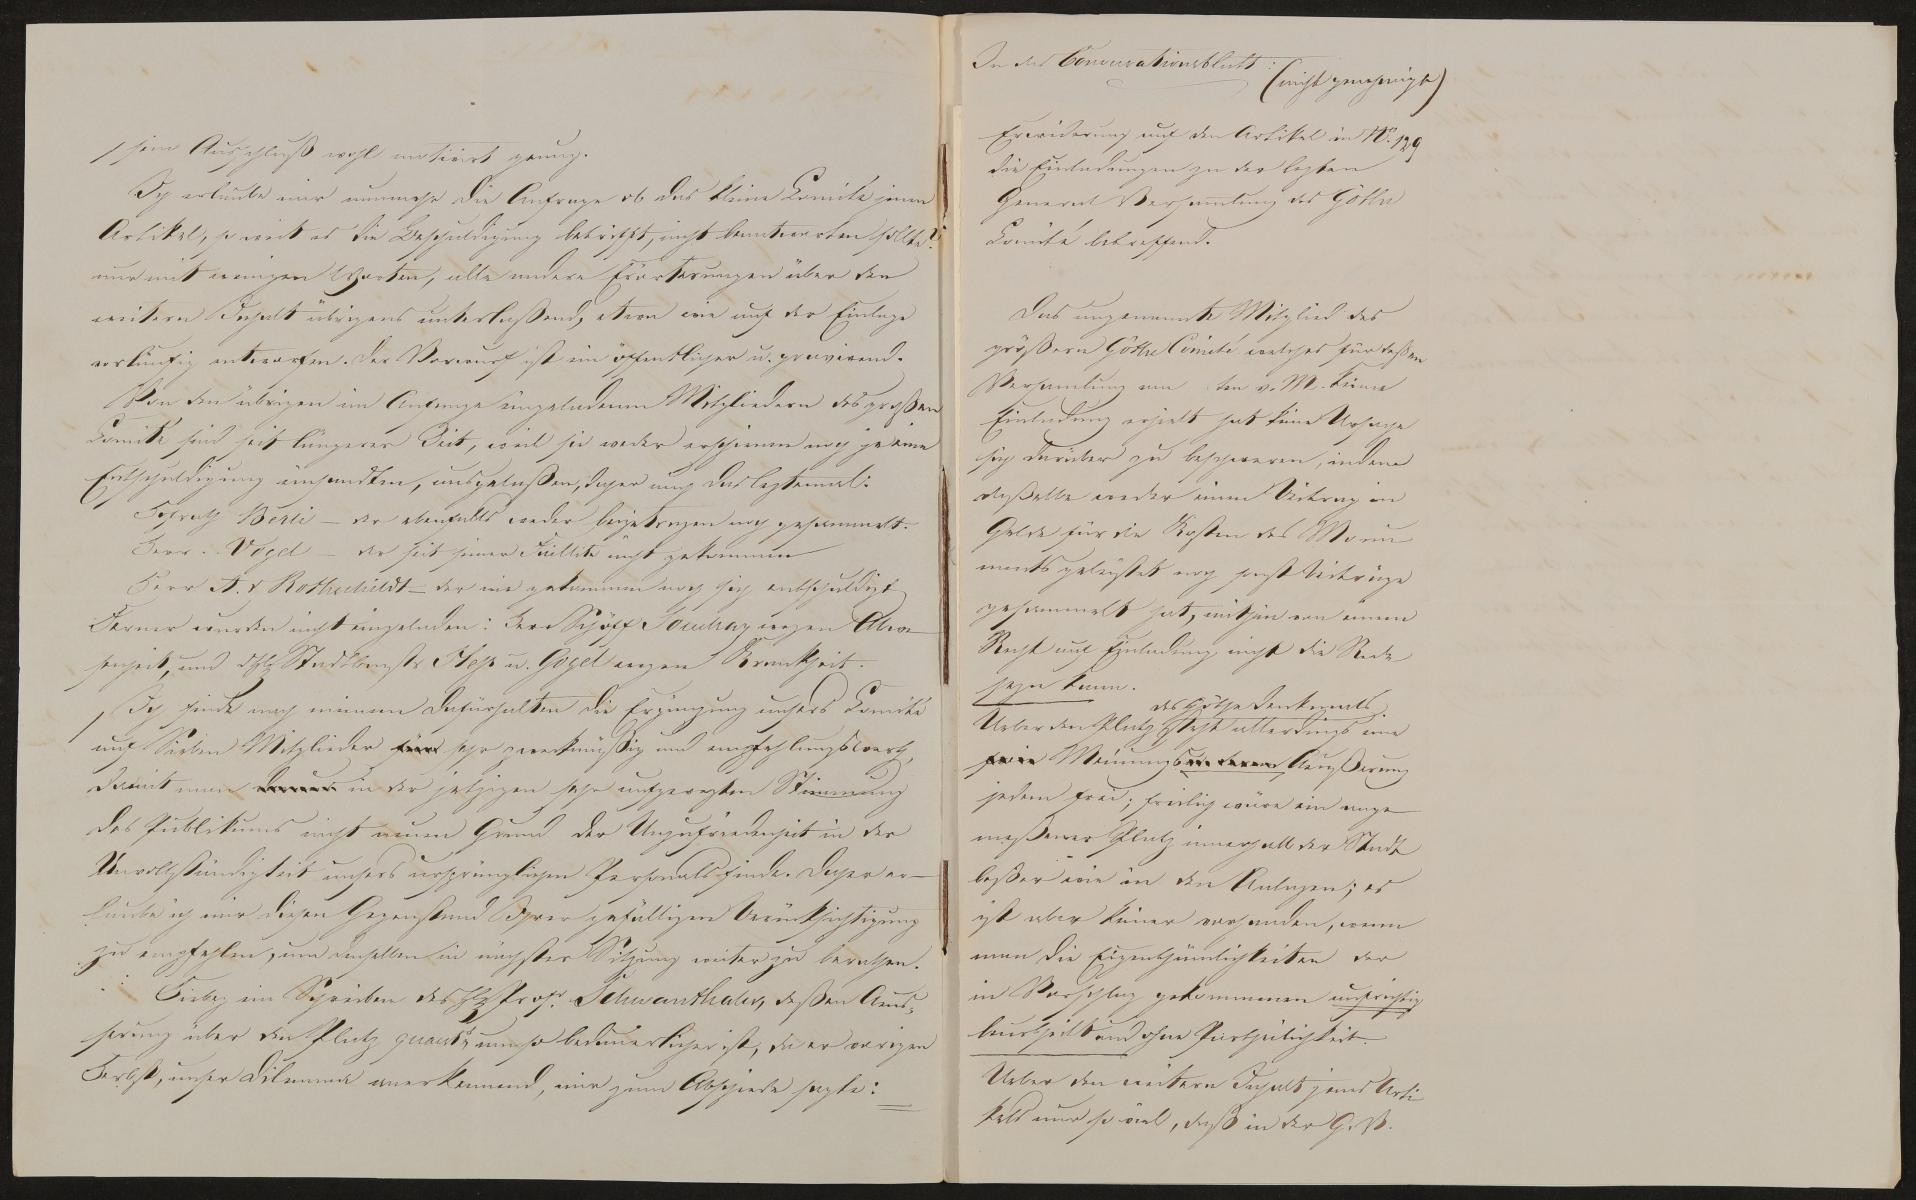 sein Ausschluß wohl motivirt genug.
Ich erlaube mir nunmehr die Anfrage ob das kleine Comité jenen
Artikel, so weit es die Beschuldigung betrifft, nicht beantworten sollte?
nur mit wenigen Worten, alle andere Erörterungen über den
weitern Inhalt übrigens unterlaßend, etwa wie auf der Einlage
vorläufig entworfen. Der Vorwurf ist ein öffentlicher u. gravirend.
Von den übrigen im Anfange eingeladenen Mitgliedern des großen
Comité sind seit längerer Zeit, weil sie weder erschienen noch je eine
Entschuldigung einsandten, ausgelaßen, daher auch das leztemal:
Hofrath Berli – der ebenfalls weder beigetragen noch gesammelt.
Herr . Vogel – der seit seiner Faillite nicht gekommen
Herr A. v Rothschildt – der nie gekommen noch sich entschuldigt
Ferner wurden nicht eingeladen: Herr Schöff Souchay wegen Abwe-
senheit, und Stadtbmstr Heß u. Gogel wegen Krankheit.
Ich finde nach meinem Dafürhalten die Ergänzung unsers Comité
auf Sieben Mitglieder sehr zweckmäßig und empfehlungswerth,
damit man in der jetzigen sehr aufgeregten Stimmung
des Publikums nicht neuen Grund der Unzufriedenheit in der
Unvollständigkeit unsers ursprünglichen Personals finde. Daher er-
laube ich mir diesen Gegenstand Ihrer gefälligen Berücksichtigung
zu empfehlen, um denselben in nächster Sitzung weiter zu berathen.
Hiebey ein Schreiben des Hr Profr Schwanthaler, deßen Aeus-
serung über den Platz quaest. um so bedauerlicher ist, da er vorigen
Herbst, unser Dilemma anerkennend, mir zum Abschiede sagte:
In das Conversationsblatt: (nicht genehmigt)
Erwiderung auf den Artikel in No. 129
die Einladungen zu der lezten
General Versammlung des Göthe
Comité betreffend.
Das ungenannte Mitglied des
größern Göthe Comité welches für deßen
Versamlung am ten v. M. keine
Einladung erhielt hat keine Ursache
sich darüber zu beschweren, indem
daßelbe weder einen Beitrag in
Gelde für die Kosten des Monu
ments geleistet noch sonst Beiträge
gesammelt hat, mithin von einem
Recht auf Einladung nicht die Rede
seyn kann.
Ueber den Platz des Göthe Denkmals steht allerdings eine
Meinungs Aeußerung
jedem frei; freilich wäre ein ange
meßener Platz innerhalb der Stadt
beßer wie in den Anlagen; es
ist aber keiner vorhanden, wenn
man die Eigenthümlichkeiten der
in Vorschlag gekommenen umsichtig
beurtheilt und ohne Partheilichkeit.
Ueber den weitern Inhalt jenes Arti
kels nur so viel, daß in der G. V.